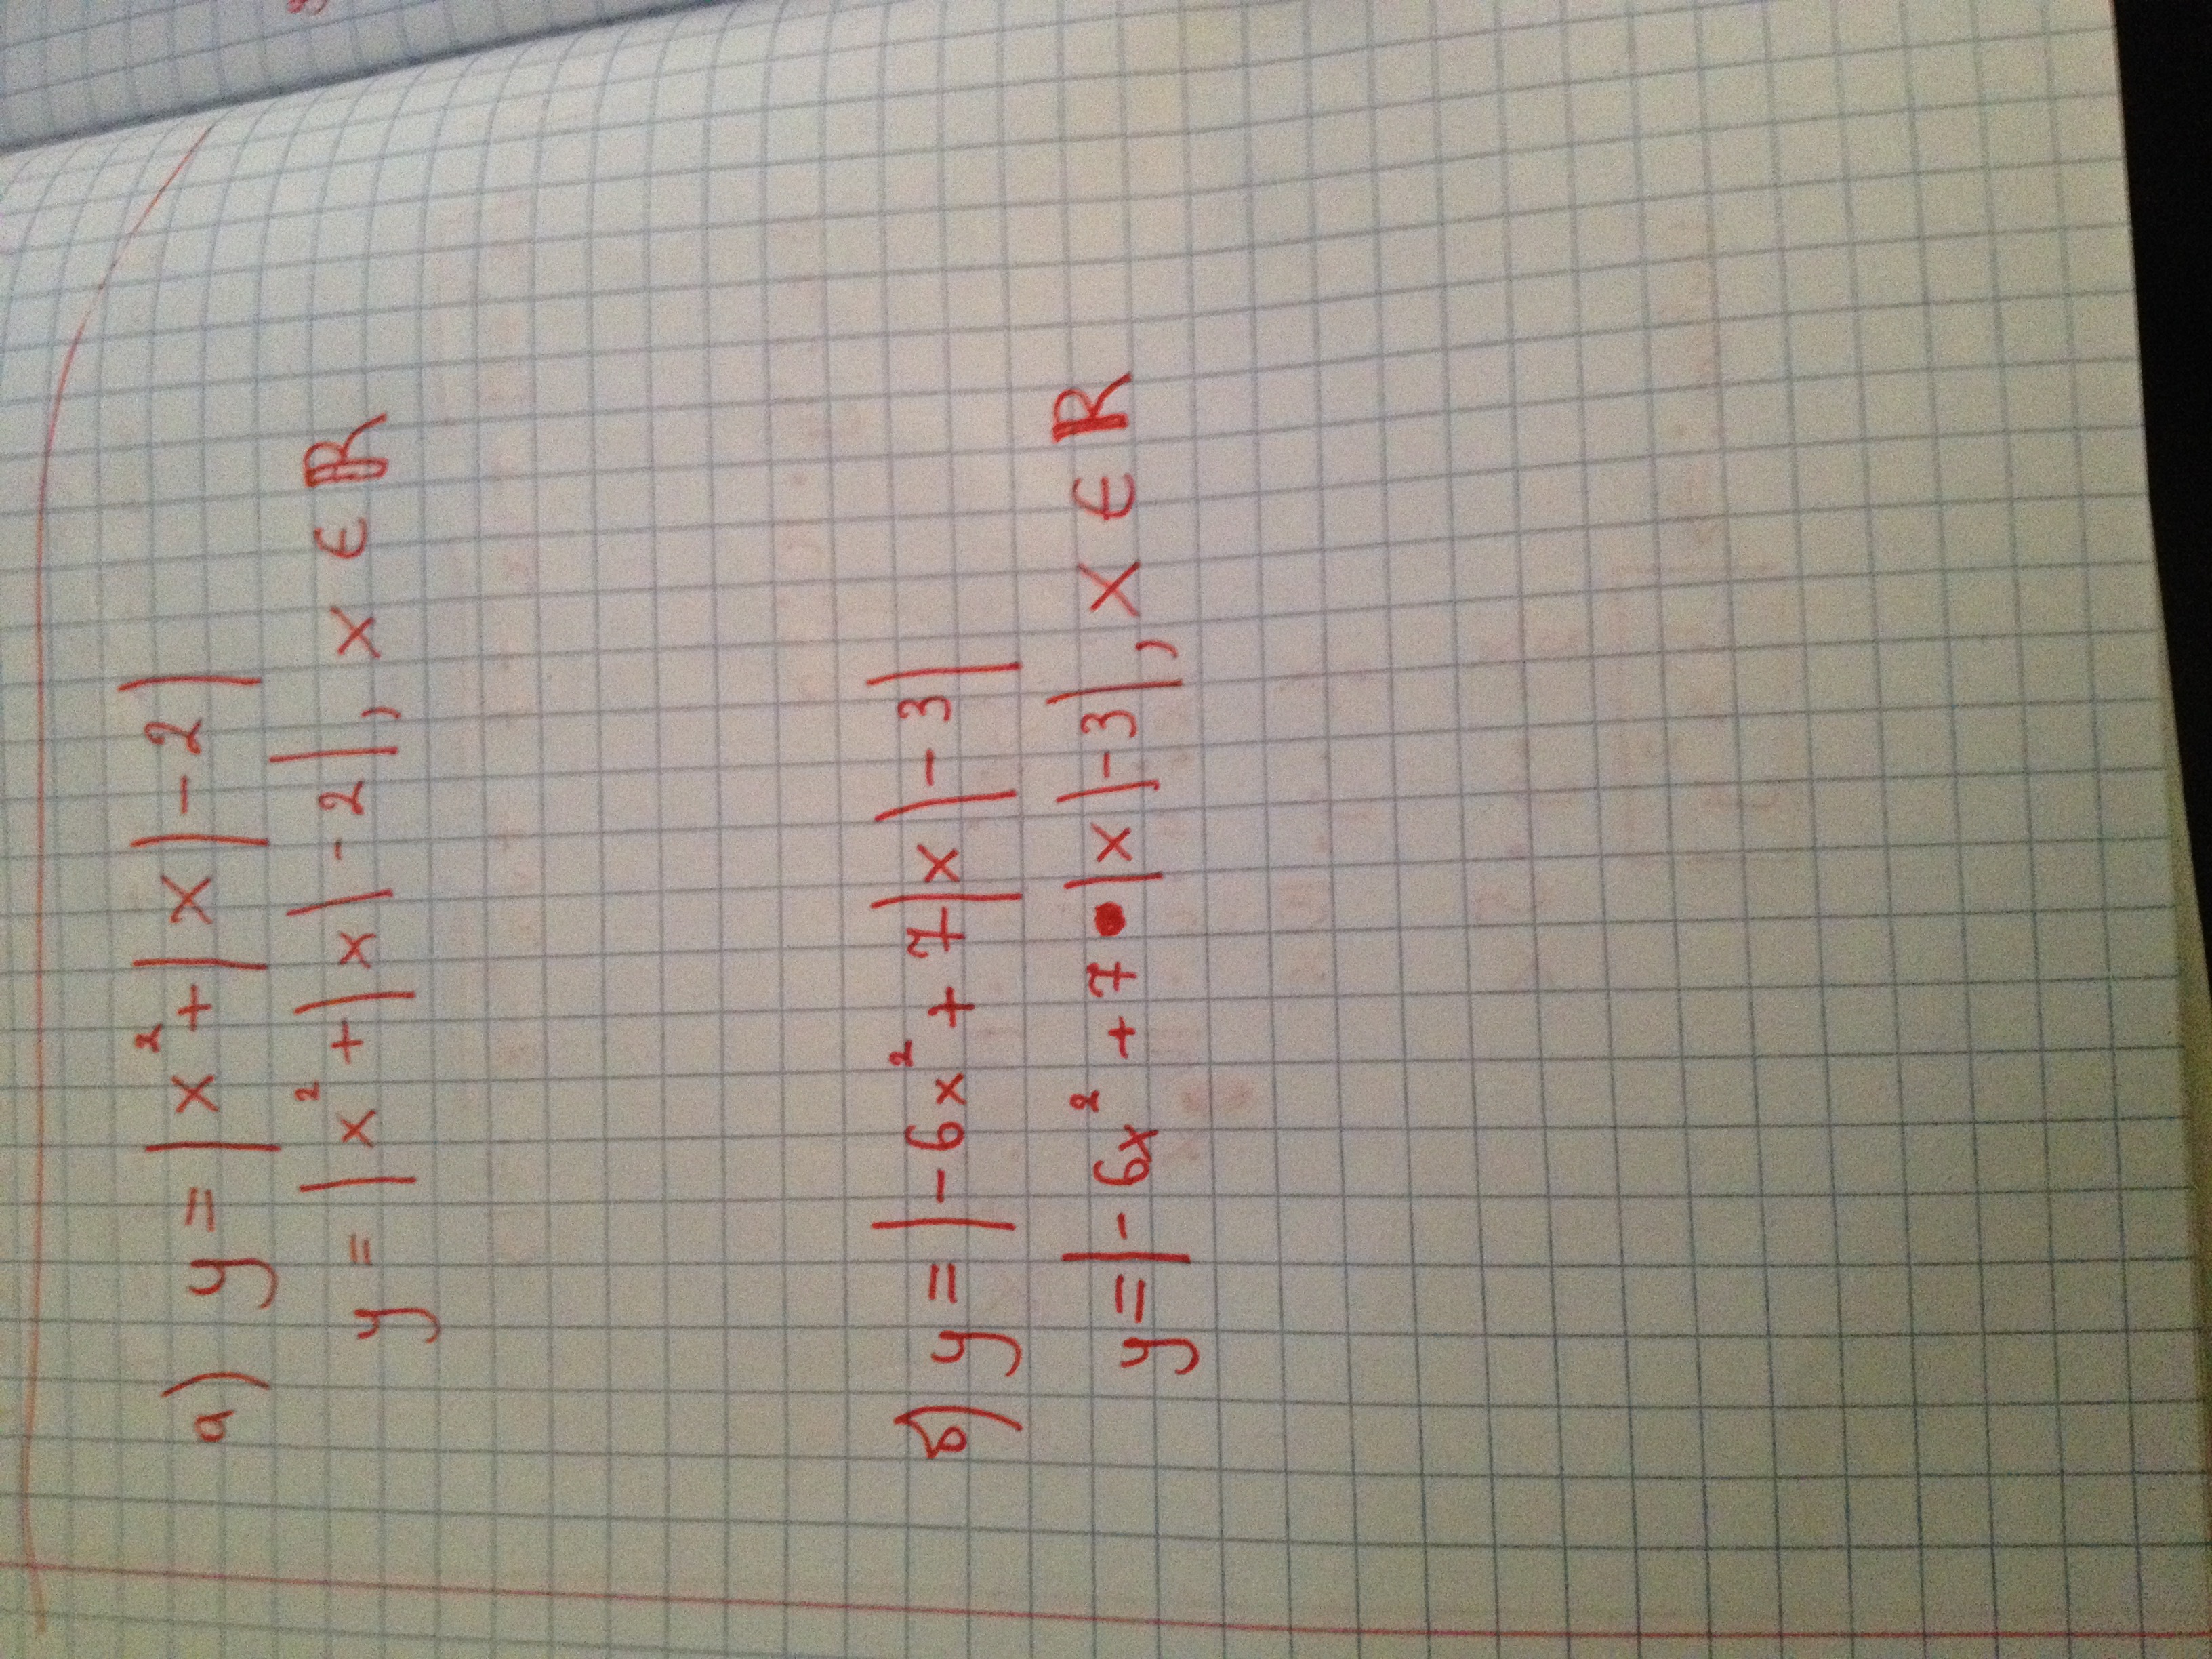 а) y = |x² + |x| - 2|
y = |x² + |x| - 2|, x ∈ ℝ
б) y = |-6x² + 7|x| - 3|
y = |-6x² + 7•|x|-3|, x ∈ ℝ